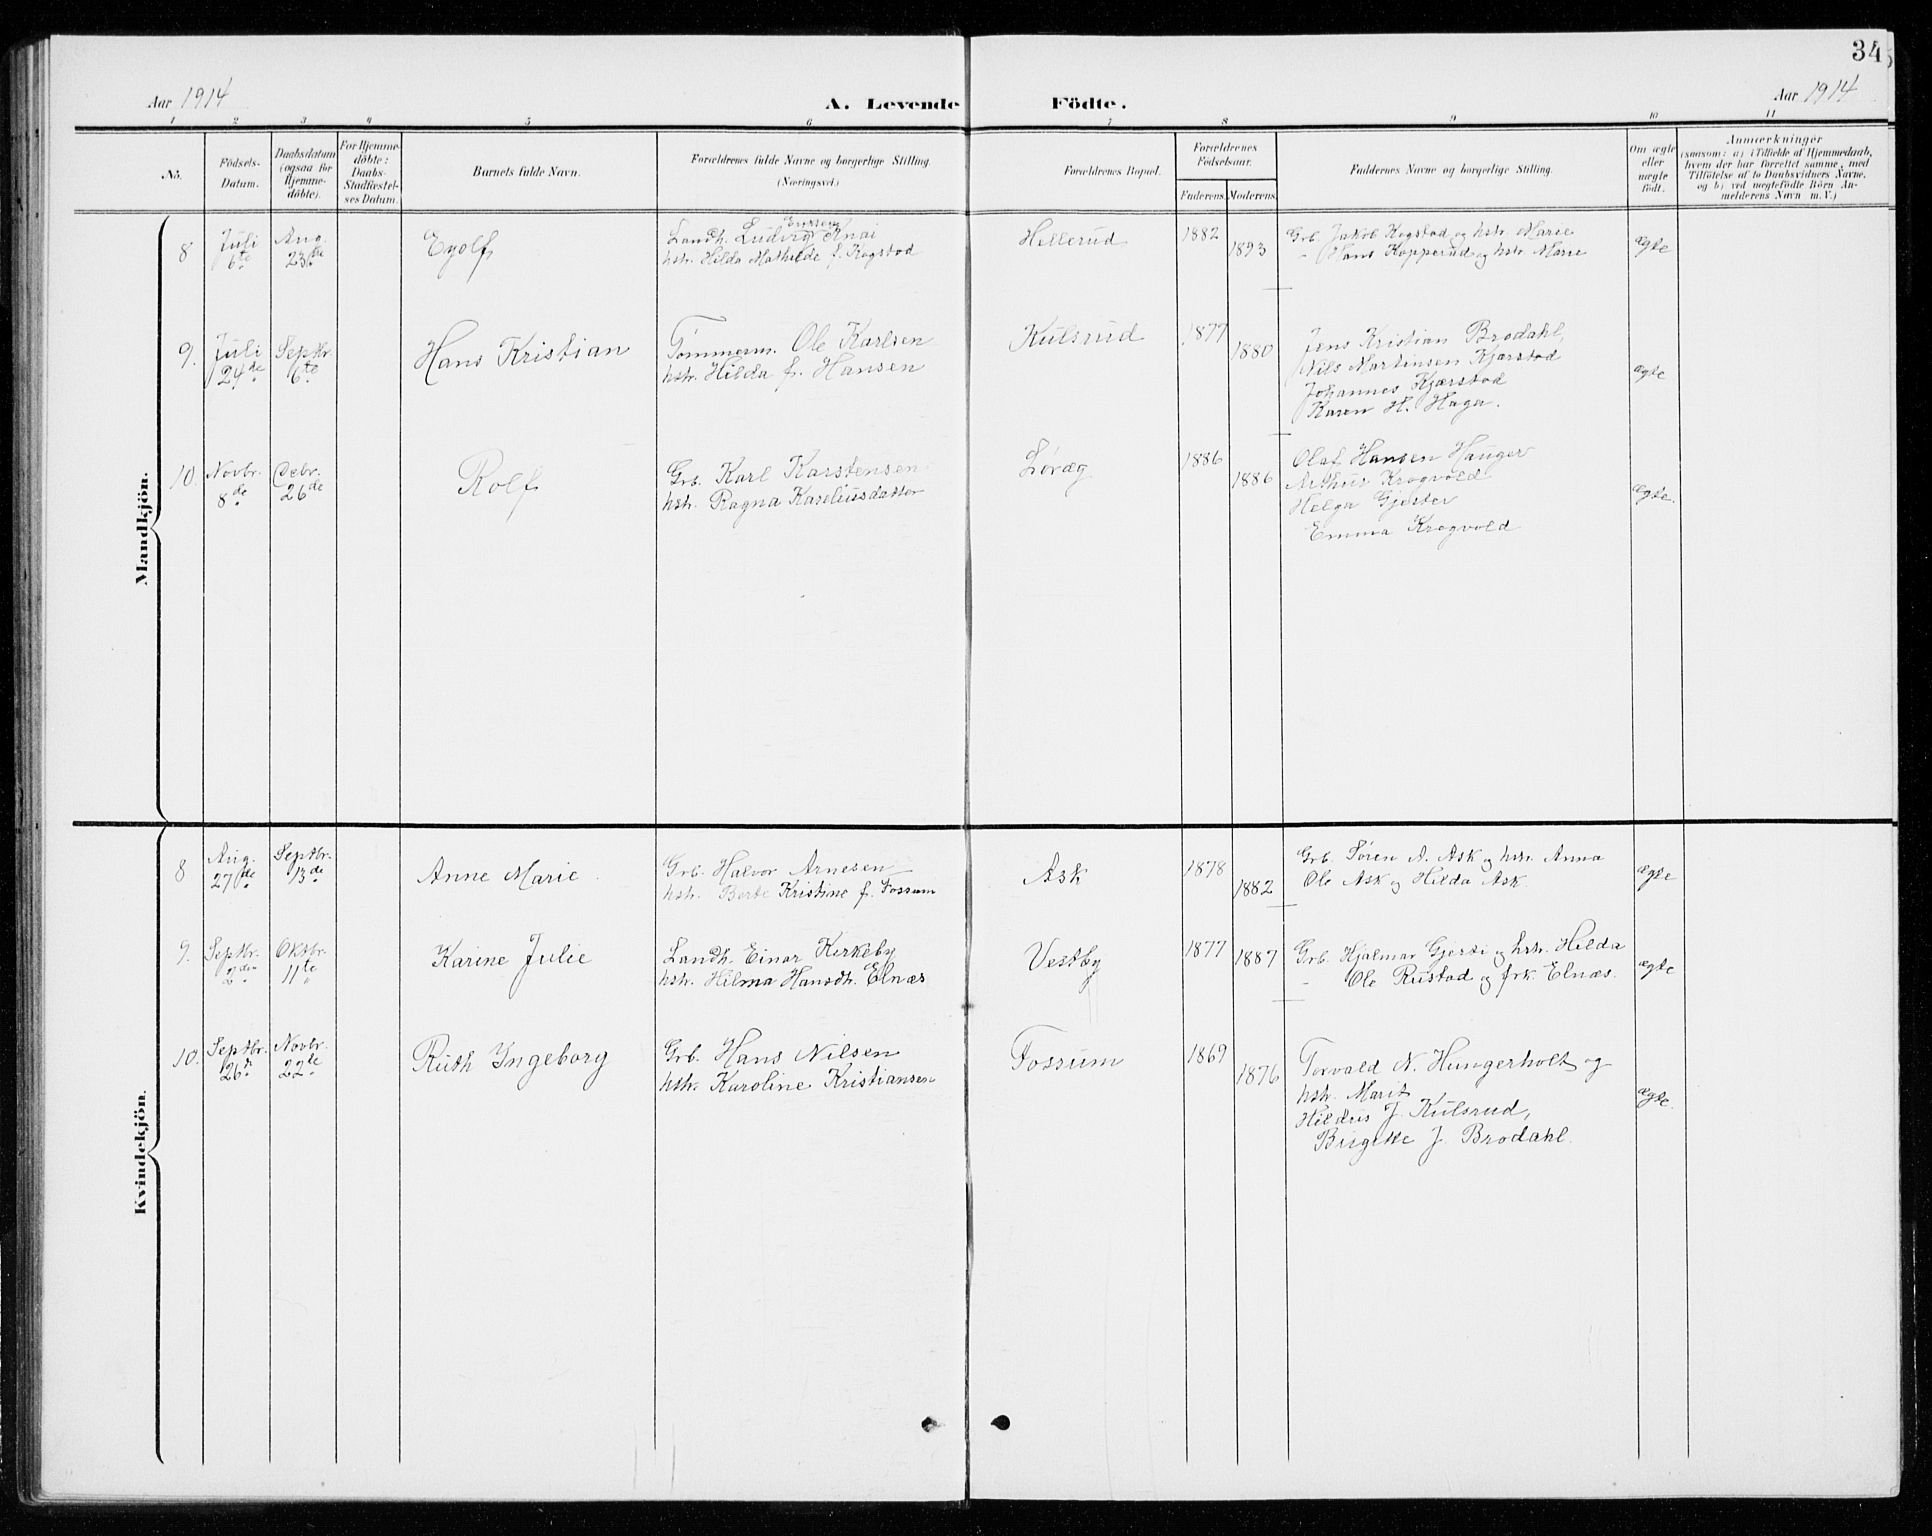 34
Aar 1914
A. Levende Födte.
Aar 1914
1 2 3 4 5 6 7 8 9 10 11
No.
Födsels-
Datum.
Daabsdatum
(ogsaa for
Hjemme-
döbte).
For Hjemme-
döbte:
Daabs-
Stadfæstel-
ses Datum.
Barnets fulde Navn.
Forældrenes fulde Navne og borgerlige Stilling.
(Næringsvei.)
Forældrenes Bopæl.
Forældrenes
Födselsaar.
Faderens. Moderens.
Faddernes Navne og borgerlige Stilling.
Om ægte
eller
uægte
födt.
Anmærkninger
(saasom: a) i Tilfælde af Hjemmedaab,
hvem der har forrettet samme, med
Tilföielse af to Daabsvidners Navne,
og b) ved uægtefödte Börn An-
melderens Navn m. V.)
Mandkjön.
8
Juli
6te
Aug.
23de
Eyolf
Landh. Ludvig
hstr. Hilda Mathilde f. Kogstad
Hellerud
1882
1893
Grb. Jakob Kogstad og hstr. Marie
- Hans Kopperud og hstr. Marie
ægte
9.
Juli
24de
Septbr.
6te
Hans Kristian
Tømmerm. Ole Karlsen
hstr. Hilda f. Hansen
Kulsrud
1877
1880
Jens Kristian Brodahl,
Nils Martinsen Kjærstad
Johannes Kjærstad
Karen H. Haga.
ægte
10.
Novbr.
8de
Debr.
26de
Rolf
Grb. Karl Karstensen
hstr. Ragna Kareliusdatter
Løvæg
1886
1886
Olaf Hansen Hauger
Arthur Krogvold
Helga Gjester
Emma Krogvold
ægte.
Kvindekjön.
8
Aug.
27de
Septbr.
13de
Anne Marie
Grb. Halvor Arnesen
hstr. Berte Kristine f. Fossum
Ask
1878
1882
Grb. Søren A. Ask og hstr. Anna
Ole Ask og Hilda Ask.
ægte
9.
Septbr.
2den
Oktbr.
11te
Karine Julie
Landh. Einar Kirkeby
hstr. Hilma Hansdtr. Elnæs
Vestby
1877
1887
Grb. Hjalmar Gjesti og hstr. Hilda
- Ole Rustad og frk. Elnæs.
ægte
10.
Septbr.
26
Novbr.
22te
Ruth Ingeborg
Grb. Hans Nilsen
hstr. Karoline Kristiansen
Fossum
1869
1876
Torvald N. Hungerholt og
hstr. Marit
Hildus J. Kulsrud,
Birgitte J. Brodahl.
ægte.